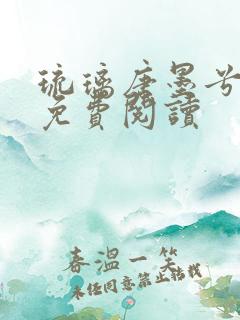 琉璃唐墨兮
免費閱讀
春溫一笑
未经同意禁止转载